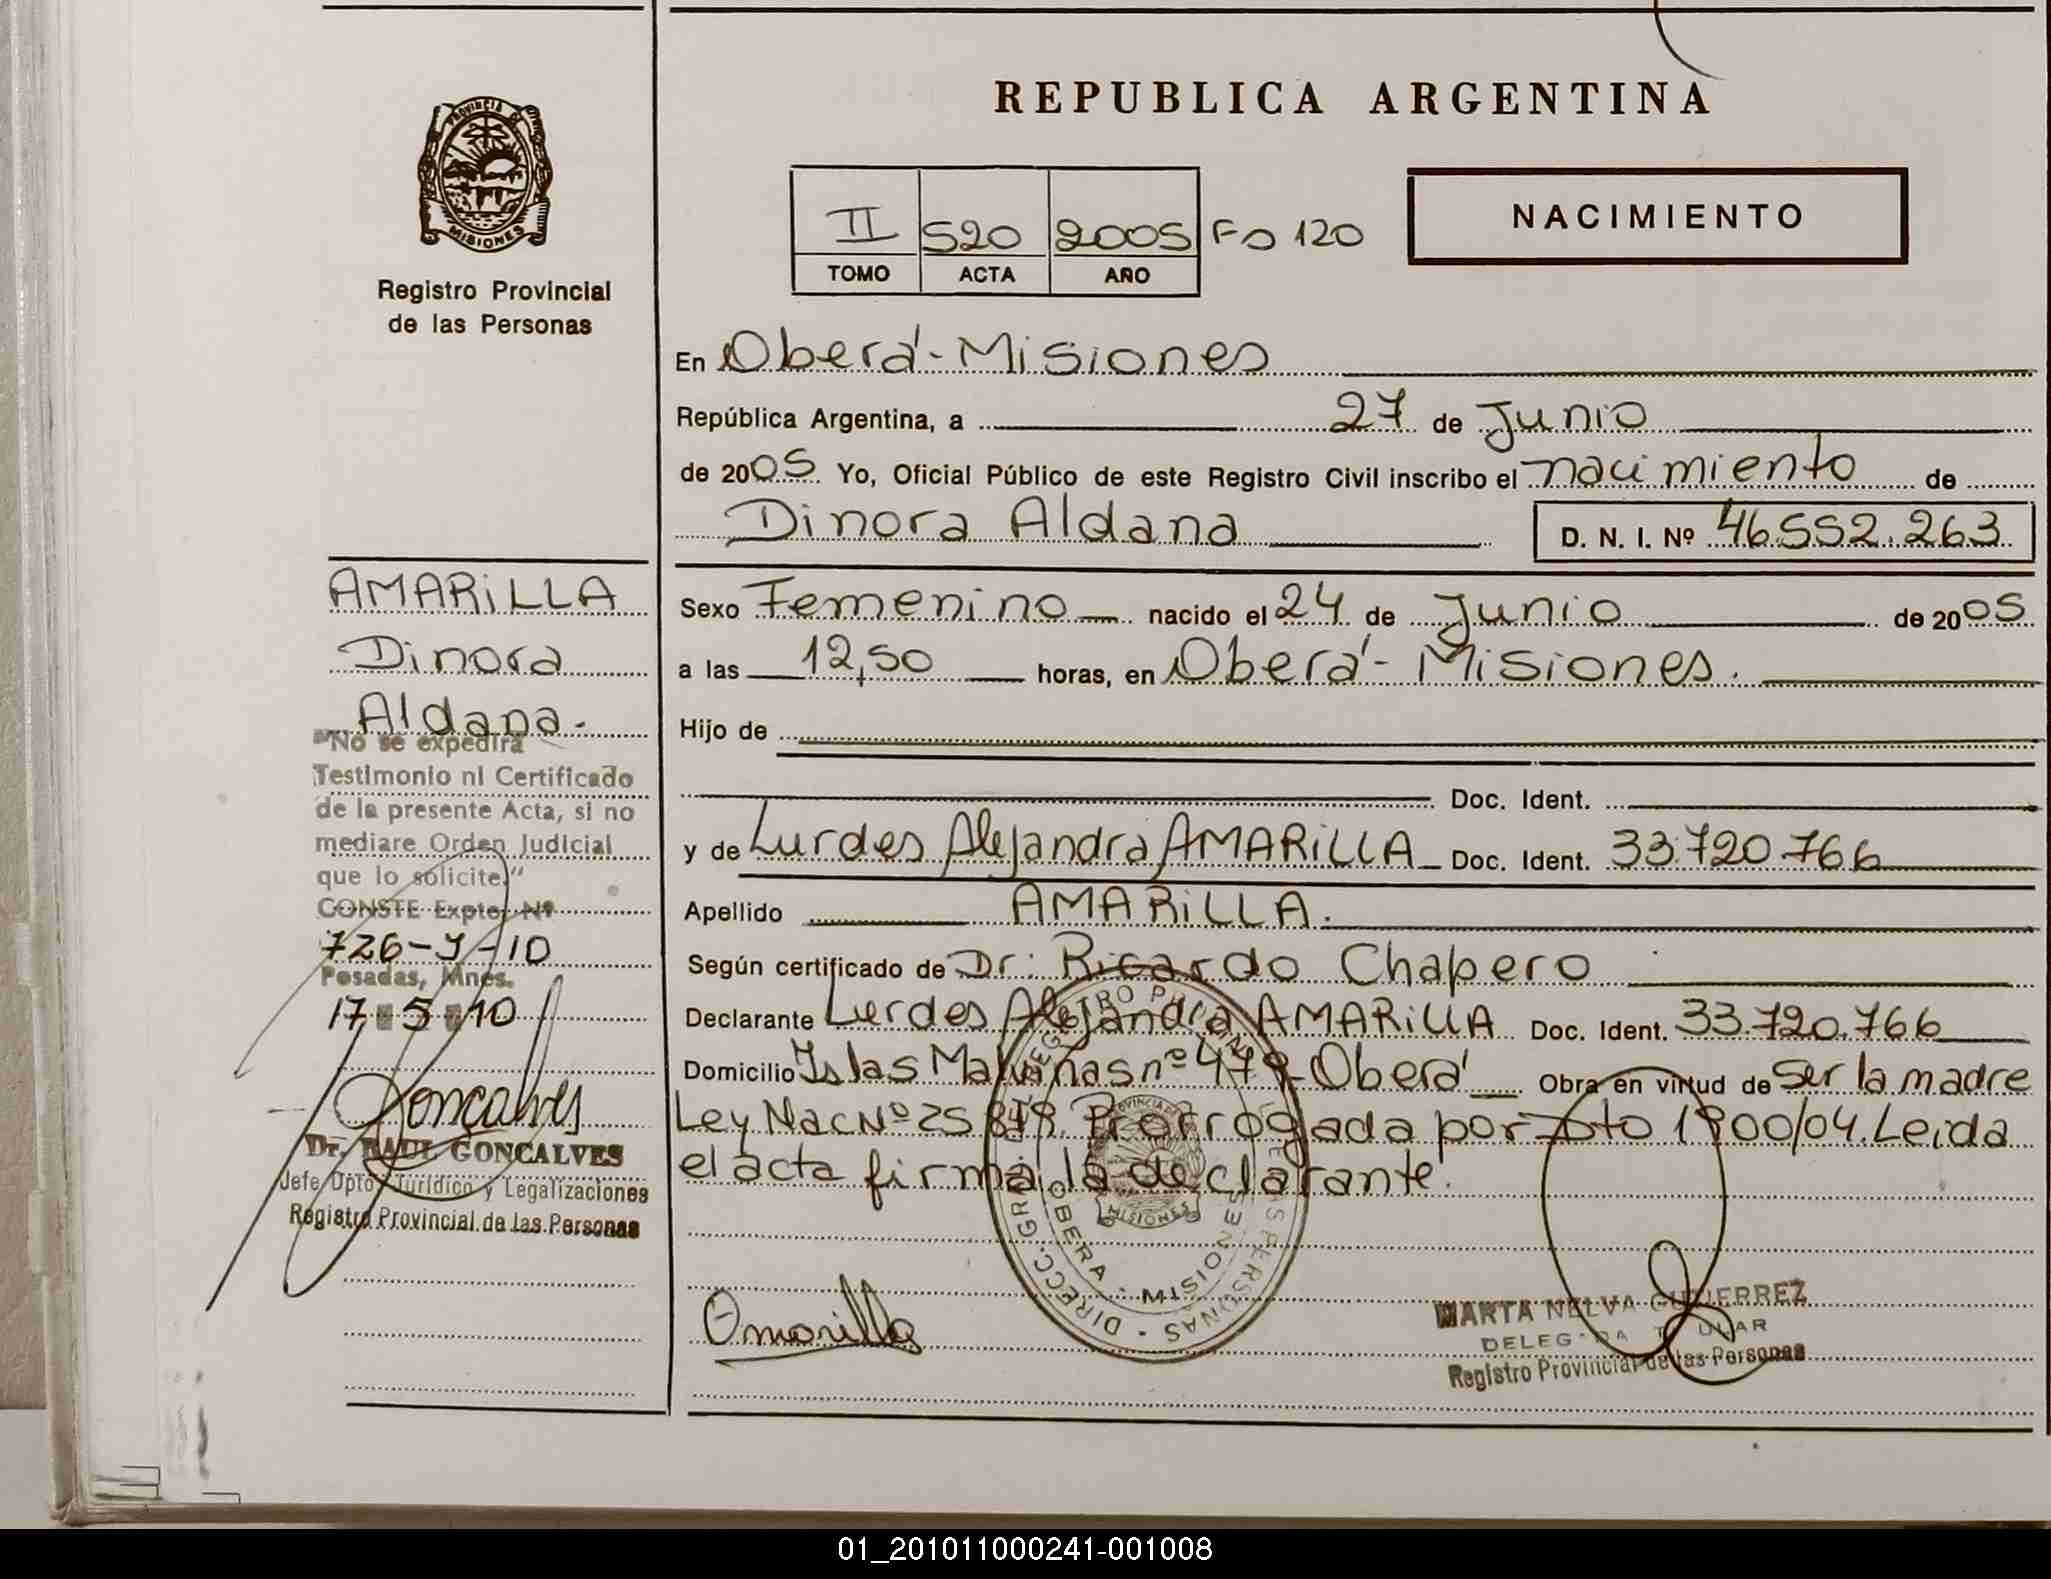 PROVINCIA DE
MISIONES
Registro Provincial
de las Personas
AMARiLLA
Dinora
Aldana.
"No se expedirá
Testimonio ni Certificado
de la presente Acta, si no
mediare Orden Judicial
que lo solicite."
CONSTE Expte. Nº
726-J-10
Posadas, Mnes.
17 5 10
Goncalves
Dr. RAUL GONCALVES
Jefe Dpto Jurídico y Legalizaciones
Registro Provincial de las Personas
REPUBLICA ARGENTINA
II 520 2005 Fo 120
TOMO ACTA AÑO
NACIMIENTO
En Oberá-Misiones
República Argentina, a 27 de Junio
de 2005 Yo, Oficial Público de este Registro Civil inscribo el nacimiento de
Dinora Aldana D. N. I. Nº 46.552.263
Sexo Femenino nacido el 24 de Junio de 2005
a las 12,50 horas, en Oberá- Misiones.
Hijo de
Doc. Ident.
y de Lurdes Alejandra AMARiLLA Doc. Ident. 33.720.766
Apellido AMARiLLA.
Según certificado de Dr: Ricardo Chapero
Declarante Lurdes Alejandra AMARiLLA Doc. Ident. 33.720.766
Domicilio Islas Malvinas nº 479-Oberá Obra en virtud de ser la madre
Ley Nac Nº 25.819. Prorrogada por Dto 1900/04. Leida
el acta firma la declarante.
DIRECC. GRAL. REGISTRO PROVINCIAL DE LAS PERSONAS
PROVINCIA DE
MISIONES
OBERA - MISIONES
Amarilla
MARTA NELVA GUTIERREZ
DELEGADA TITULAR
Registro Provincial de las Personas
01_201011000241-001008